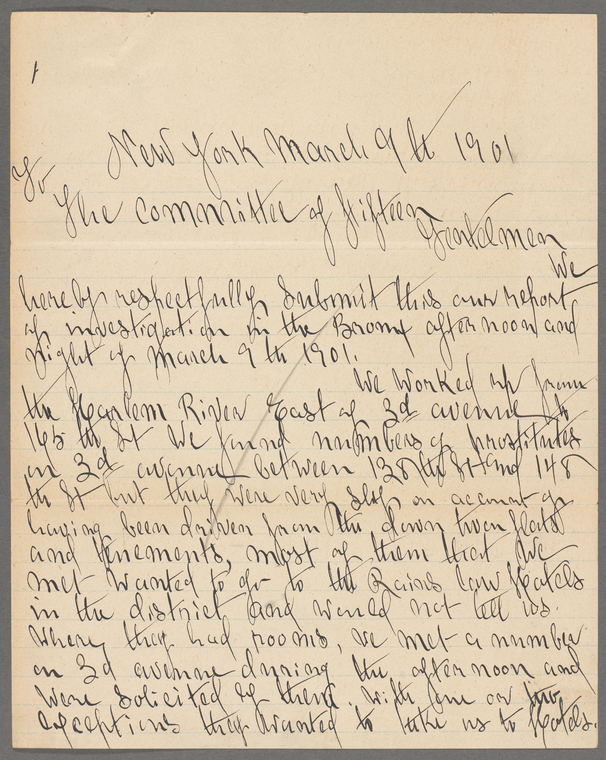 1
New York March 9th 1901
To
The Committee of Fifteen
Gentelmen
We
hereby respectfully submit this our report
of investigation in the Bronx afternoon and
night of March 9th 1901.
We worked up from
the Harlem River East of 3d avenue to
165th St We found numbers of prostitutes
on 3d avenue between 138th St and 148
th St but they were very shy on account of
having been driven from the down town flats
and tenements, most of them that We
met wanted to go to the Rains law Hotels
in the district and would not tell us
where they had rooms, we met a number
on 3d avenue during the afternoon and
were solicited by them, with one or two
exceptions they wanted to take us to Hotels.